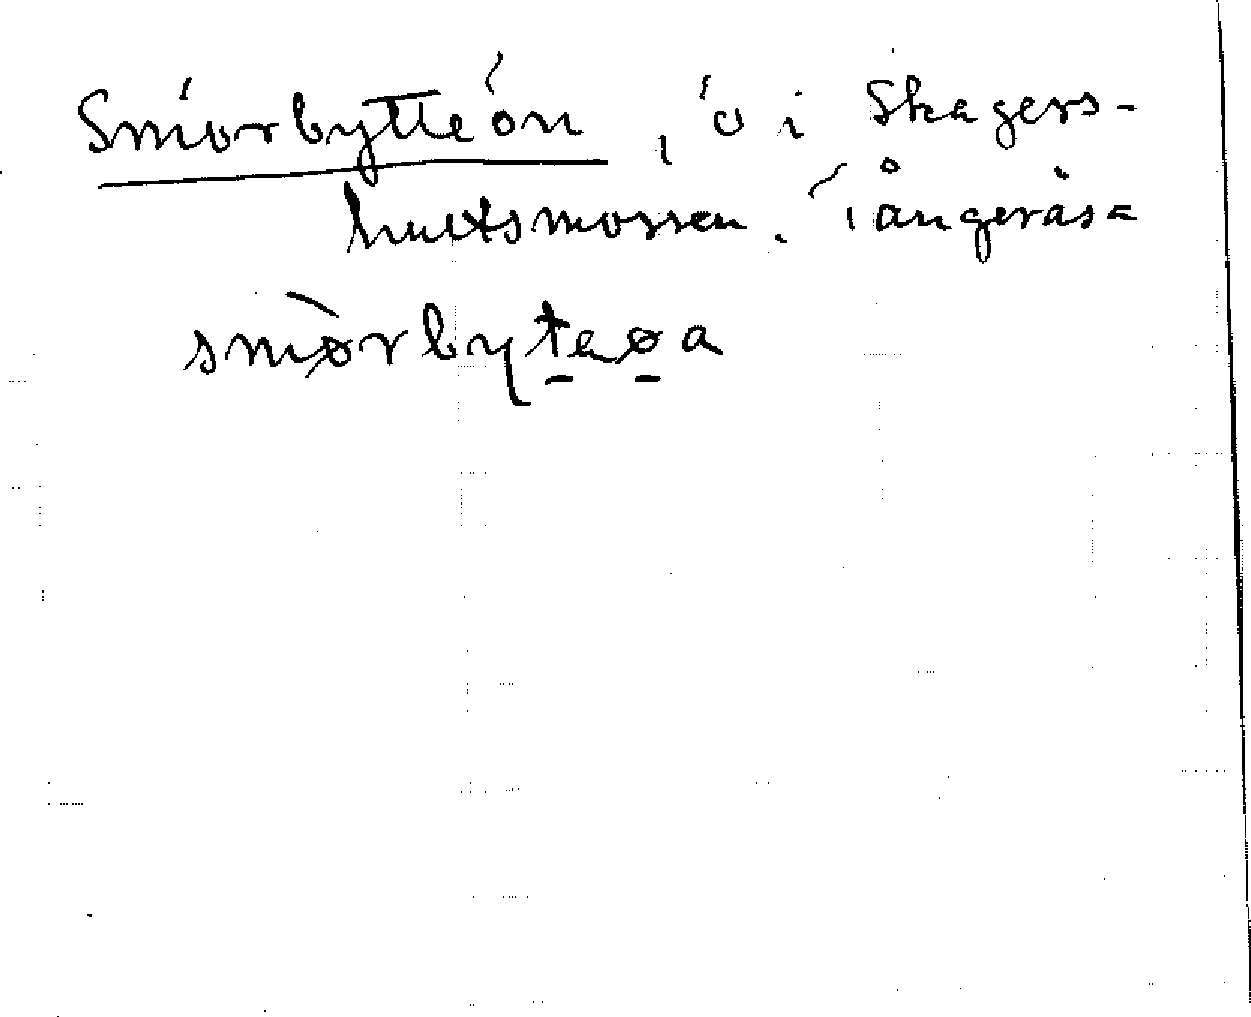 Smörbytteön, ö i Skagers-
hultsmossen. Tångeråsa
smørbytaøa